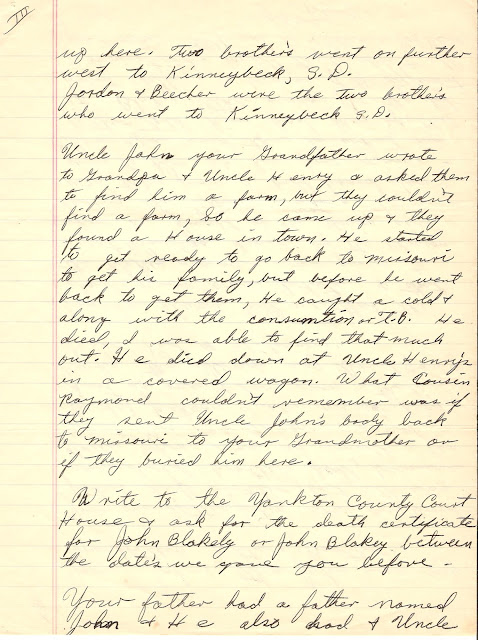 III
up here. Two brother's went on further
west to Kinneybeck, S.D.
Jordon & Beecher were the two brother's
who went to Kinneybeck S.D.
Uncle John your Grandfather wrote
to Grandpa & Uncle Henry & asked them
to find him a farm, but they couldn't
find a farm, So he came up & they
found a House in town. He started
to get ready to go back to Missouri
to get his family, but before he went
back to get them, He caught a cold &
along with the consumtion or T.B. He
died, I was able to find that much
out. He died down at Uncle Henry's
in a covered wagon. What Cousin
Raymond couldn't remember was if
they sent Uncle John's body back
to Missouri to your Grandmother or
if they buried him here.
Write to the Yankton County Court
House & ask for the death certificate
for John Blakely or John Blakey between
the date's we gave you before -
Your father had a father named
John & He also had & Uncle